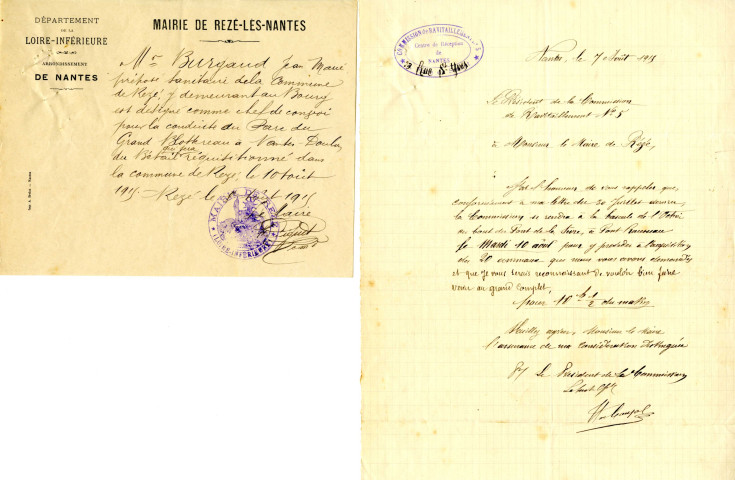 DÉPARTEMENT
DE LA
LOIRE-INFÉRIEURE
ARRONDISSEMENT
DE NANTES
MAIRIE DE REZÉ-LES-NANTES
Mr Burgaud Jean Marie
préposé sanitaire de la Commune
de Rezé y demeurant au Bourg
est désigné comme chef de convoi
pour la conduite du Parc du
Grand Blottereau à Nantes-Doulon
du Bétail qui sera réquisitionné dans
la commune de Rezé le 10 Août
1915. Rezé le Août 1915
Maire
MAIRIE DE REZÉ
(LOIRE-INFÉRIEURE)
COMMISSION DE RAVITAILLEMENT
Centre de Réception
de
NANTES
Nantes, le 7 Août 1915
Le Président de la Commission
de Ravitaillement No 5
à Monsieur le Maire de Rezé,
J'ai l'honneur de vous rappeler que
conformément à ma lettre du 30 Juillet dernier
la Commission se rendra à la bascule de l'Octroi
au bout du Pont de la Loire, à Pont Rousseau
le Mardi 10 août pour y procéder à l'acquisition
des 20 animaux que nous vous avons demandés
et que je vous serais reconnaissant de vouloir bien faire
venir au grand complet,
pour 10 h 1/2 du matin
Veuillez agréer, Monsieur le Maire
l'assurance de ma considération distinguée
Le Président de la Commission